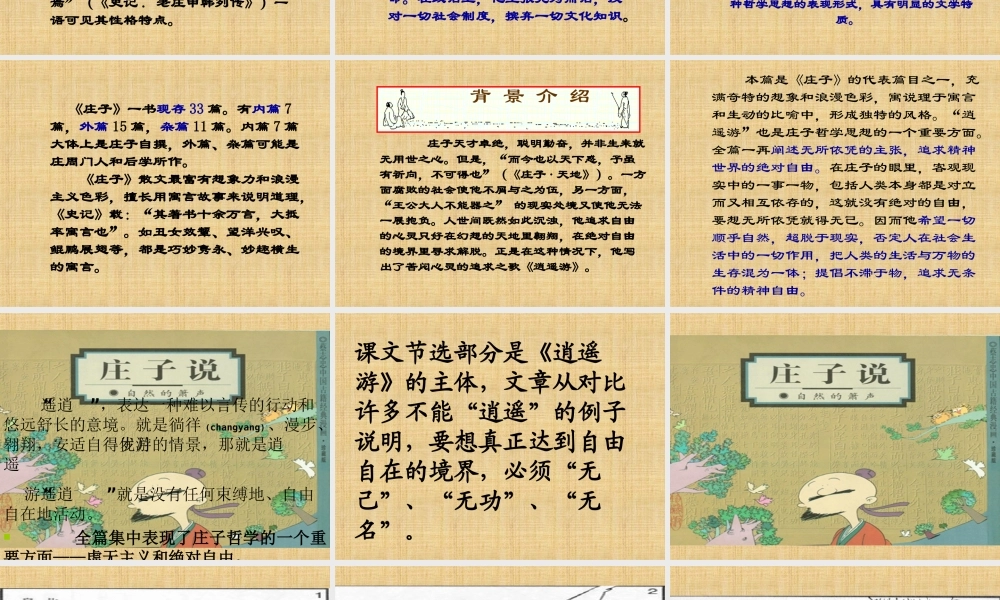 篇”（《史记．老庄申韩列传》）一
语可见其性格特点。
对一切社会制度，摈弃一切文化知识。
种哲学思想的表现形式，具有明显的文学特
质。
《庄子》一书现存 33 篇。有内篇 7
篇，外篇 15 篇，杂篇 11 篇。内篇 7 篇
大体上是庄子自撰，外篇、杂篇可能是
庄周门人和后学所作。
《庄子》散文最富有想象力和浪漫
主义色彩，擅长用寓言故事来说明道理，
《史记》载：“其著书十余万言，大抵
率寓言也”。如丑女效颦、望洋兴叹、
鲲鹏展翅等，都是巧妙隽永、妙趣横生
的寓言。
背 景 介 绍
庄子天才卓绝，聪明勤奋，并非生来就
无用世之心。但是，“而今也以天下惑，予虽
有祈向，不可得也”（《庄子·天地》）。一方
面腐败的社会使他不屑与之为伍，另一方面，
“王公大人不能器之” 的现实处境又使他无法
一展抱负。人世间既然如此沉浊，他追求自由
的心灵只好在幻想的天地里翱翔，在绝对自由
的境界里寻求解脱。正是在这种情况下，他写
出了苦闷心灵的追求之歌《逍遥游》。
本篇是《庄子》的代表篇目之一，充
满奇特的想象和浪漫色彩，寓说理于寓言
和生动的比喻中，形成独特的风格。“逍
遥游”也是庄子哲学思想的一个重要方面。
全篇一再阐述无所依凭的主张，追求精神
世界的绝对自由。在庄子的眼里，客观现
实中的一事一物，包括人类本身都是对立
而又相互依存的，这就没有绝对的自由，
要想无所依凭就得无己。因而他希望一切
顺乎自然，超脱于现实，否定人在社会生
活中的一切作用，把人类的生活与万物的
生存混为一体；提倡不滞于物，追求无条
件的精神自由。
庄子说
自然的箫声
逍遥”，表达一种难以言传的行动和
悠远舒长的意境。就是徜徉 (changyang) 、漫步、
翱翔，安适自得优游的情景，那就是逍
遥
游逍遥 ”就是没有任何束缚地、自由
自在地活动。
全篇集中表现了庄子哲学的一个重
要方面——虚无主义和绝对自由。
课文节选部分是《逍遥
游》的主体，文章从对比
许多不能“逍遥”的例子
说明，要想真正达到自由
自在的境界，必须“无
己”、 “无功”、“无
名”。
庄子说
自然的箫声
1
2